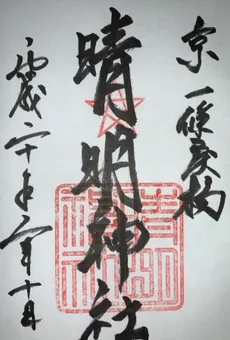 京一條戻橋
晴明神社
平成二十年二月十日